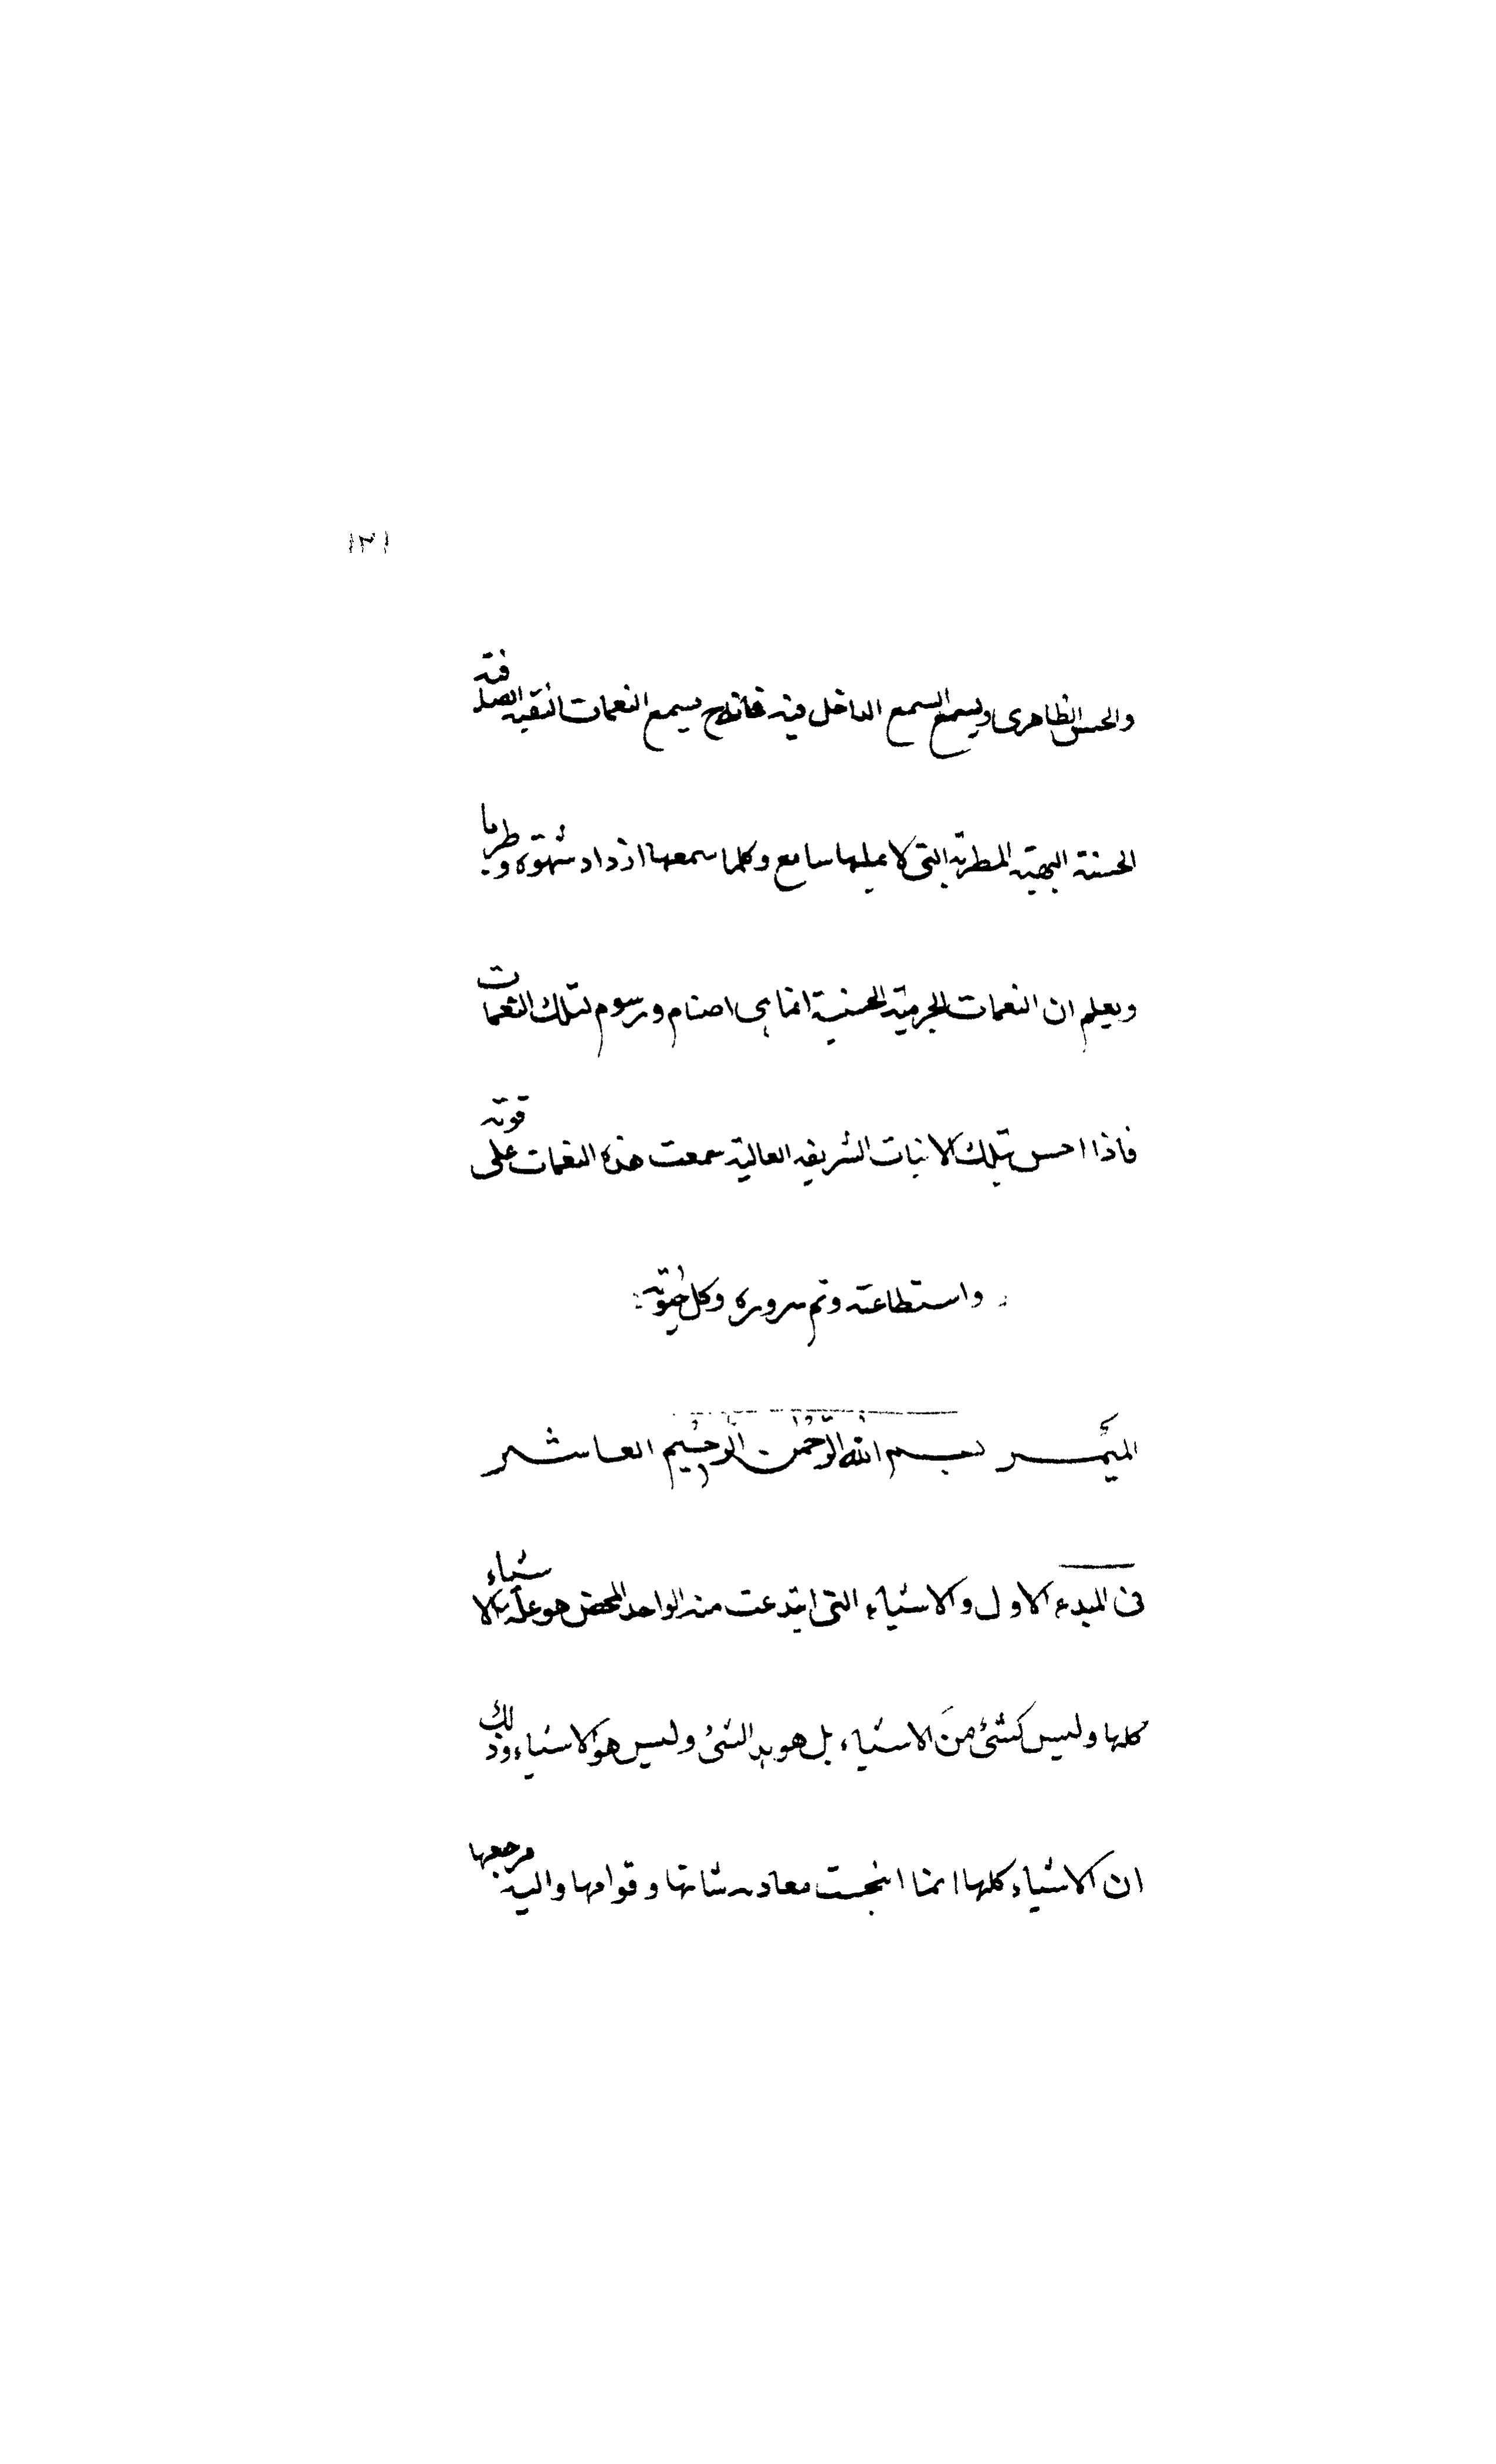 ١٣١
والحس الظاهرى ويسمع السمع الداخل فيه فانه ح يسمع النغمات النقيه الصافية
الحسنة البهيّه المطربه التى لا يملها سامع وكلما سمعها ازداد شهوة وطربا
ويعلم ان النغمات الجرمية الحسية انما هى اصنام ورسوم لتلك النغمات
فاذا احس تلك الانيات الشريفه العالية سمعت هذه النغمات على قوته
واستطاعته وتم سروره وكل حيوته
الميمر بسم الله الرحمن الرحيم العاشر
فى المبدء الاول والاشياء التى ابتدعت منه الواحد المحض هو علة الاشياء
كلها وليس كشئ من الاشياء بل هو بدء الشئ وليس هو الاشياء وذلك
ان الاشياء كلها انما انبجست منه وبه ثباتها وقوامها واليه مرجعها